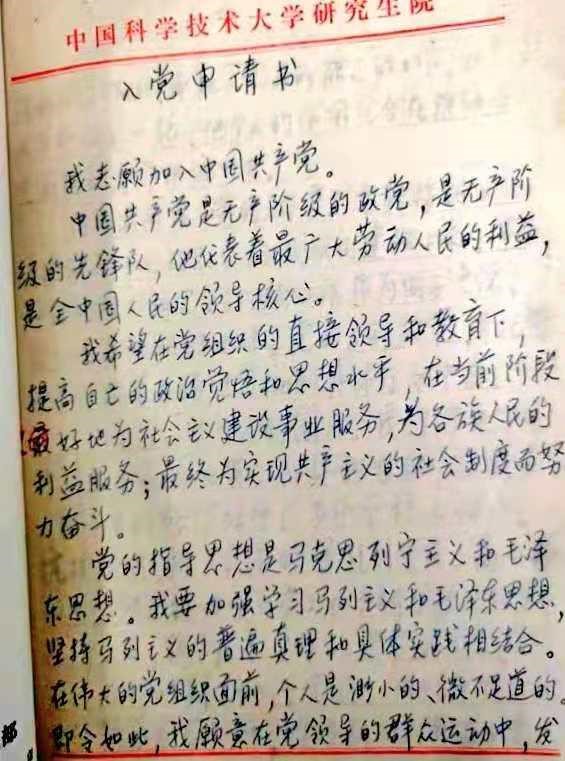 中国科学技术大学研究生院
入党申请书
我志愿加入中国共产党。
中国共产党是无产阶级的政党，是无产阶
级的先锋队，他代表着最广大劳动人民的利益，
是全中国人民的领导核心。
我希望在党组织的直接领导和教育下，
提高自己的政治觉悟和思想水平，在当前阶段
最好地为社会主义建设事业服务，为各族人民的
利益服务；最终为实现共产主义的社会制度而努
力奋斗。
党的指导思想是马克思列宁主义和毛泽
东思想。我要加强学习马列主义和毛泽东思想，
坚持马列主义的普遍真理和具体实践相结合。
在伟大的党组织面前，个人是渺小的、微不足道的。
即令如此，我愿意在党领导的群众运动中，发